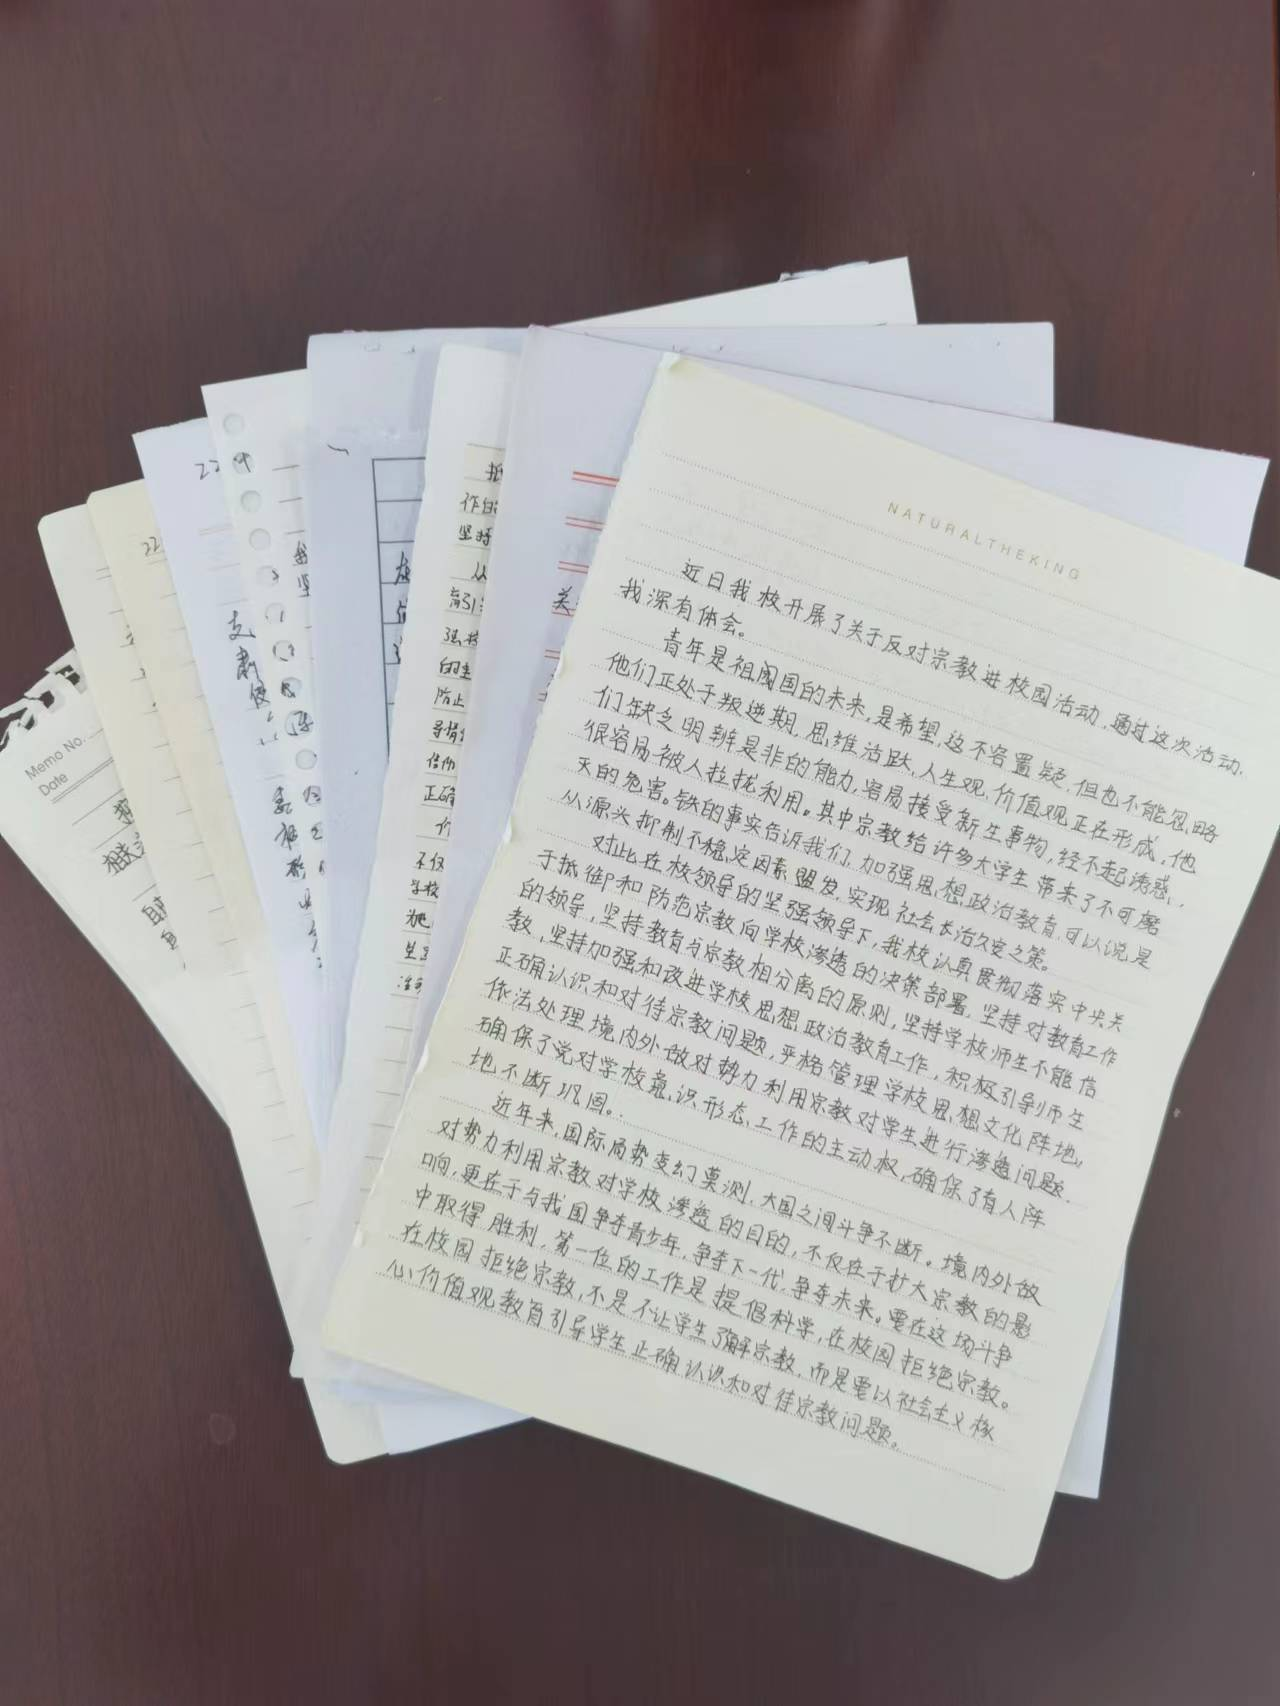 NATURALTHEKING
近日我校开展了关于反对宗教进校园活动,通过这次活动,
我深有体会。
青年是祖国的未来,是希望,这不容置疑,但也不能忽略
他们正处于叛逆期,思维活跃,人生观、价值观正在形成,他
们缺乏明辨是非的能力,容易接受新生事物,经不起诱惑,
很容易被人拉拢利用。其中宗教给许多大学生带来了不可磨
灭的危害。铁的事实告诉我们,加强思想政治教育,可以说是
从源头抑制不稳定因素盟发,实现社会长治久安之策。
对此在校领导的坚强领导下,我校认真贯彻落实中央关
于抵御和防范宗教向学校渗透的决策部署,坚持对教育工作
的领导,坚持教育与宗教相分离的原则,坚持学校师生不能信
教,坚持加强和改进学校思想政治教育工作,积极引导师生
正确认识和对待宗教问题,严格管理学校思想文化阵地,
依法处理境内外敌对势力利用宗教对学生进行渗透问题,
确保了党对学校意识形态工作的主动权,确保了育人阵
地不断巩固。
近年来,国际局势变幻莫测,大国之间斗争不断。境内外敌
对势力利用宗教对学校渗透的目的,不仅在于扩大宗教的影
响,更在于与我国争夺青少年,争夺下一代,争夺未来。要在这场斗争
中取得胜利,第一位的工作是提倡科学,在校园拒绝宗教。
在校园拒绝宗教,不是不让学生了解宗教,而是要以社会主义核
心价值观教育引导学生正确认识和对待宗教问题。
作
坚持
从
强
的
防止
正确
不仅
学校
支
Memo No.
Date